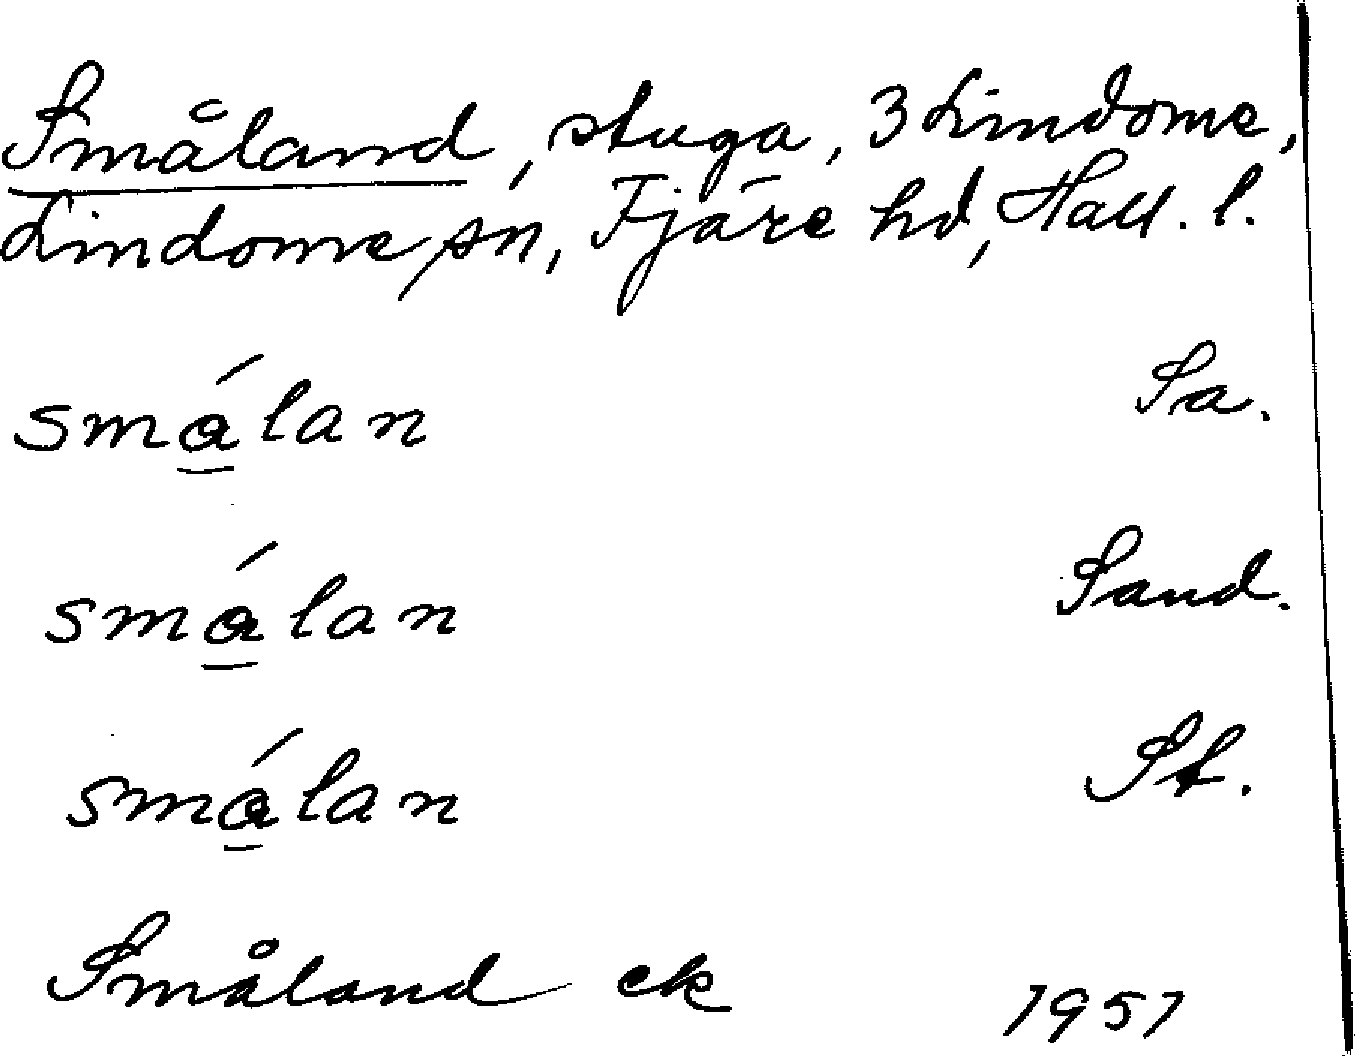 Småland, stuga, 3 Lindome,
Lindome sn, Fjäre hd, Hall. l.
smá̱lan Sa.
smá̱lan Sand.
smá̱lan St.
Småland ek 1951